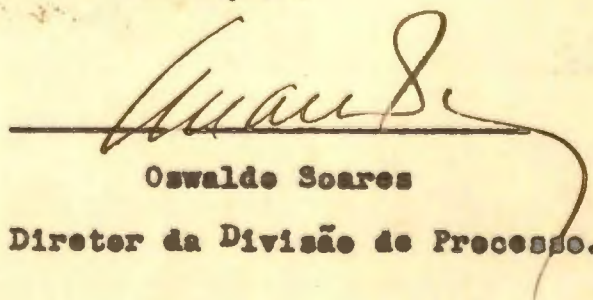 Oswaldo Soares
Diretor da Divisão de Processo.